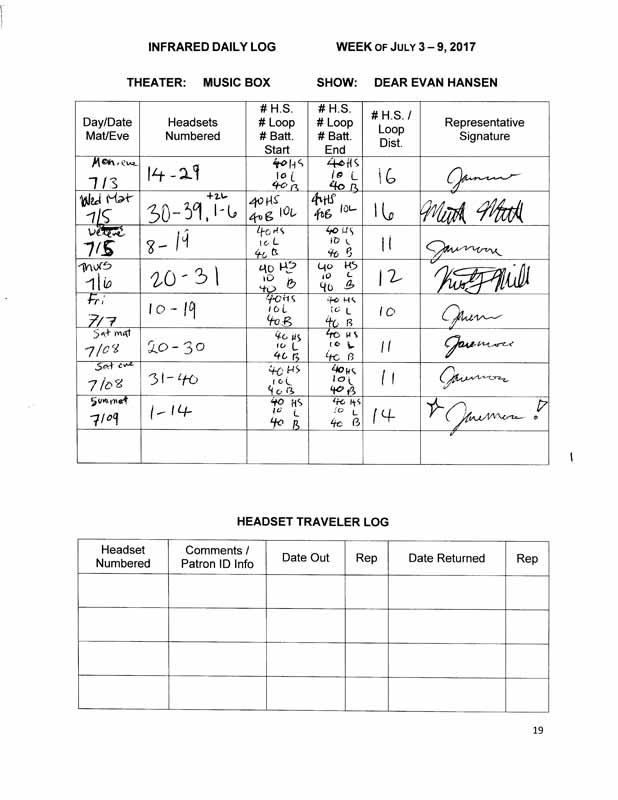 INFRARED DAILY LOG WEEK OF JULY 3 – 9, 2017
THEATER: MUSIC BOX SHOW: DEAR EVAN HANSEN
Day/Date Mat/Eve Headsets Numbered # H.S. # Loop # Batt. Start # H.S. # Loop # Batt. End # H.S. / Loop Dist. Representative Signature
Mon. eve 7/3 14 - 29 40HS 10 L 40 B 40HS 10 L 40 B 16
Wed Mat 7/5 30 - 39, 1-6 +2L 40HS 40B 10L 40HS 40B 10L 16
7/5 8 - 19 40HS 10 L 40 B 40 HS 10 L 40 B 11
Thurs 7/6 20 - 31 40 HS 10 L 40 B 40 HS 10 L 40 B 12
Fri 7/7 10 - 19 40HS 10L 40B 40 HS 10 L 40 B 10
Sat mat 7/08 20 - 30 40 HS 10 L 40 B 40 HS 10 L 40 B 11
Sat eve 7/08 31 - 40 40 HS 10 L 40 B 40HS 10 L 40 B 11
Sun mat 7/09 1 - 14 40 HS 10 L 40 B 40 HS 10 L 40 B 14
HEADSET TRAVELER LOG
Headset Numbered Comments / Patron ID Info Date Out Rep Date Returned Rep
19